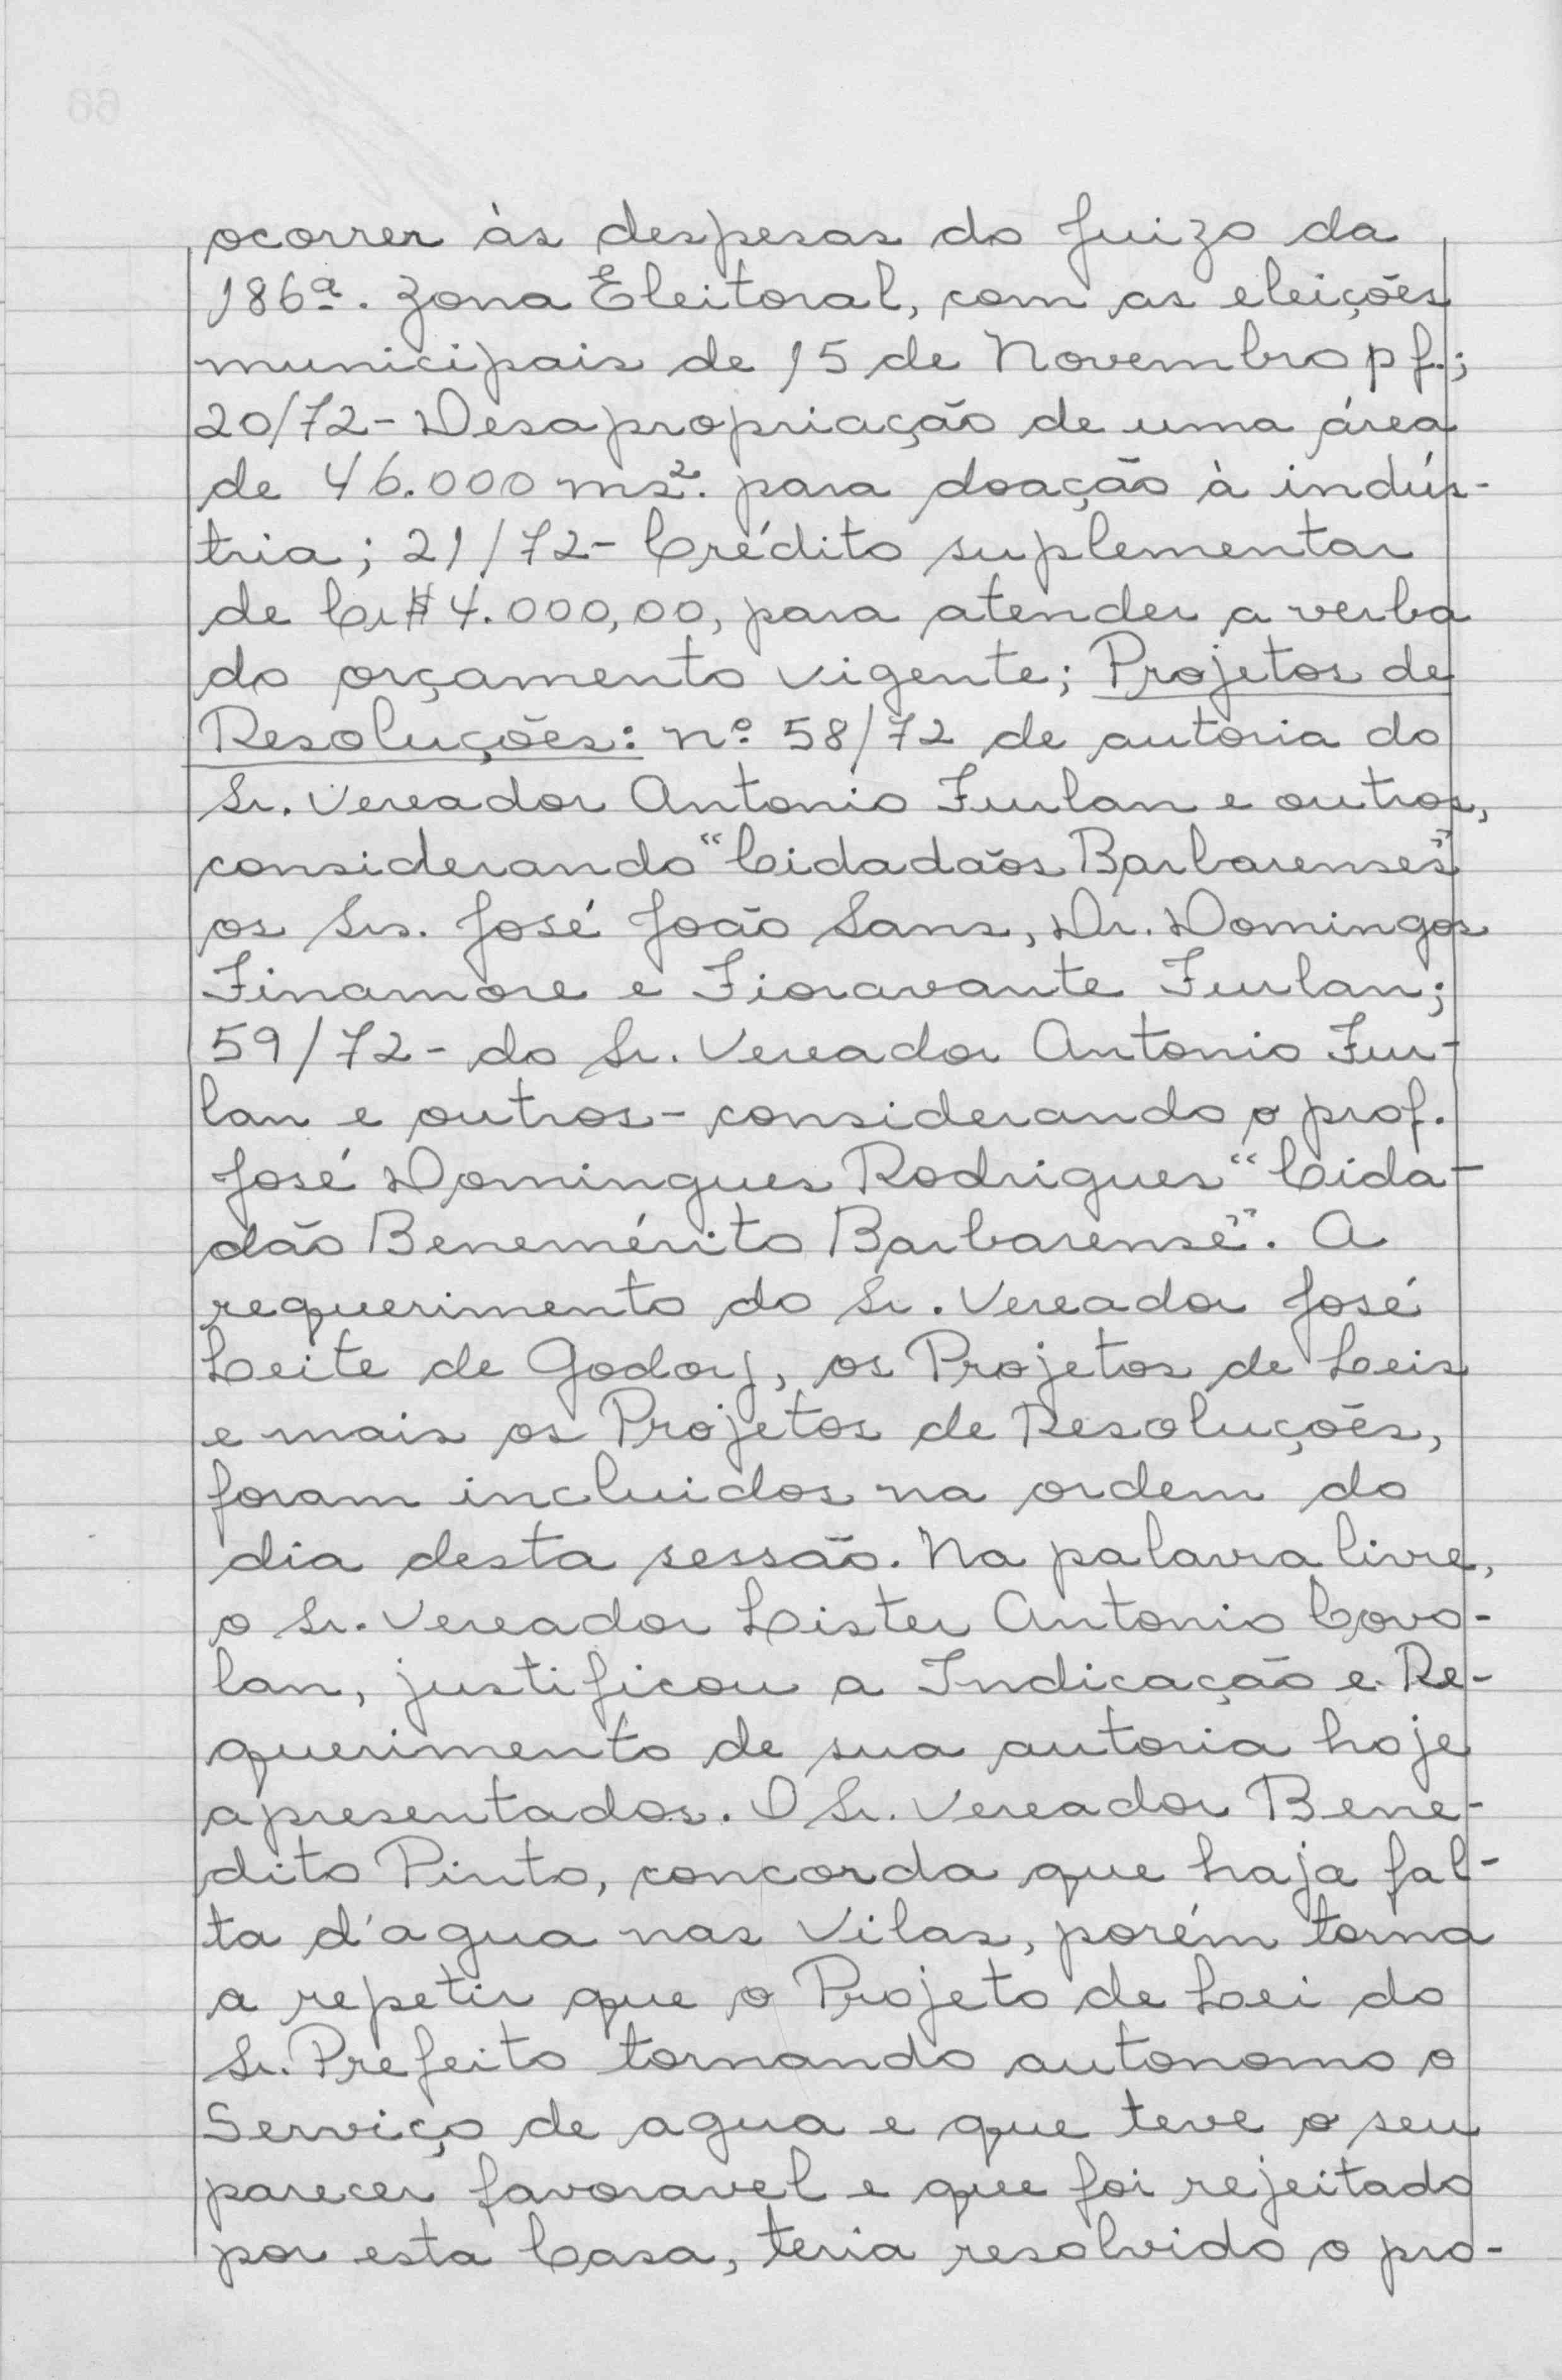 ocorrer às despesas do Juizo da
186ª. Zona Eleitoral, com as eleições
municipais de 15 de Novembro pf.;
20/72 - Desapropriação de uma área
de 46.000 ms². para doação à indús-
tria; 21/72 - Crédito suplementar
de Cr$ 4.000,00, para atender a verba
do orçamento vigente; Projetos de
Resoluções: nº 58/72 de autoria do
Sr. Vereador Antonio Furlan e outros,
considerando "Cidadãos Barbarenses"
os Srs. José João Sans, Dr. Domingos
Finamore e Fioravante Furlan;
59/72 - do Sr. Vereador Antonio Fur-
lan e outros - considerando o prof.
José Domingues Rodrigues "Cida-
dão Benemérito Barbarense". A
requerimento do Sr. Vereador José
Leite de Godoy, os Projetos de Leis
e mais os Projetos de Resoluções,
foram incluidos na ordem do
dia desta sessão. Na palavra livre,
o Sr. Vereador Lister Antonio Covo-
lan, justificou a Indicação e Re-
querimento de sua autoria hoje
apresentados. O Sr. Vereador Bene-
dito Pinto, concorda que haja fal-
ta d'agua nas Vilas, porém torna
a repetir que o Projeto de Lei do
Sr. Prefeito tornando autonomo o
Serviço de agua e que teve o seu
parecer favoravel e que foi rejeitado
por esta Casa, teria resolvido o pro-